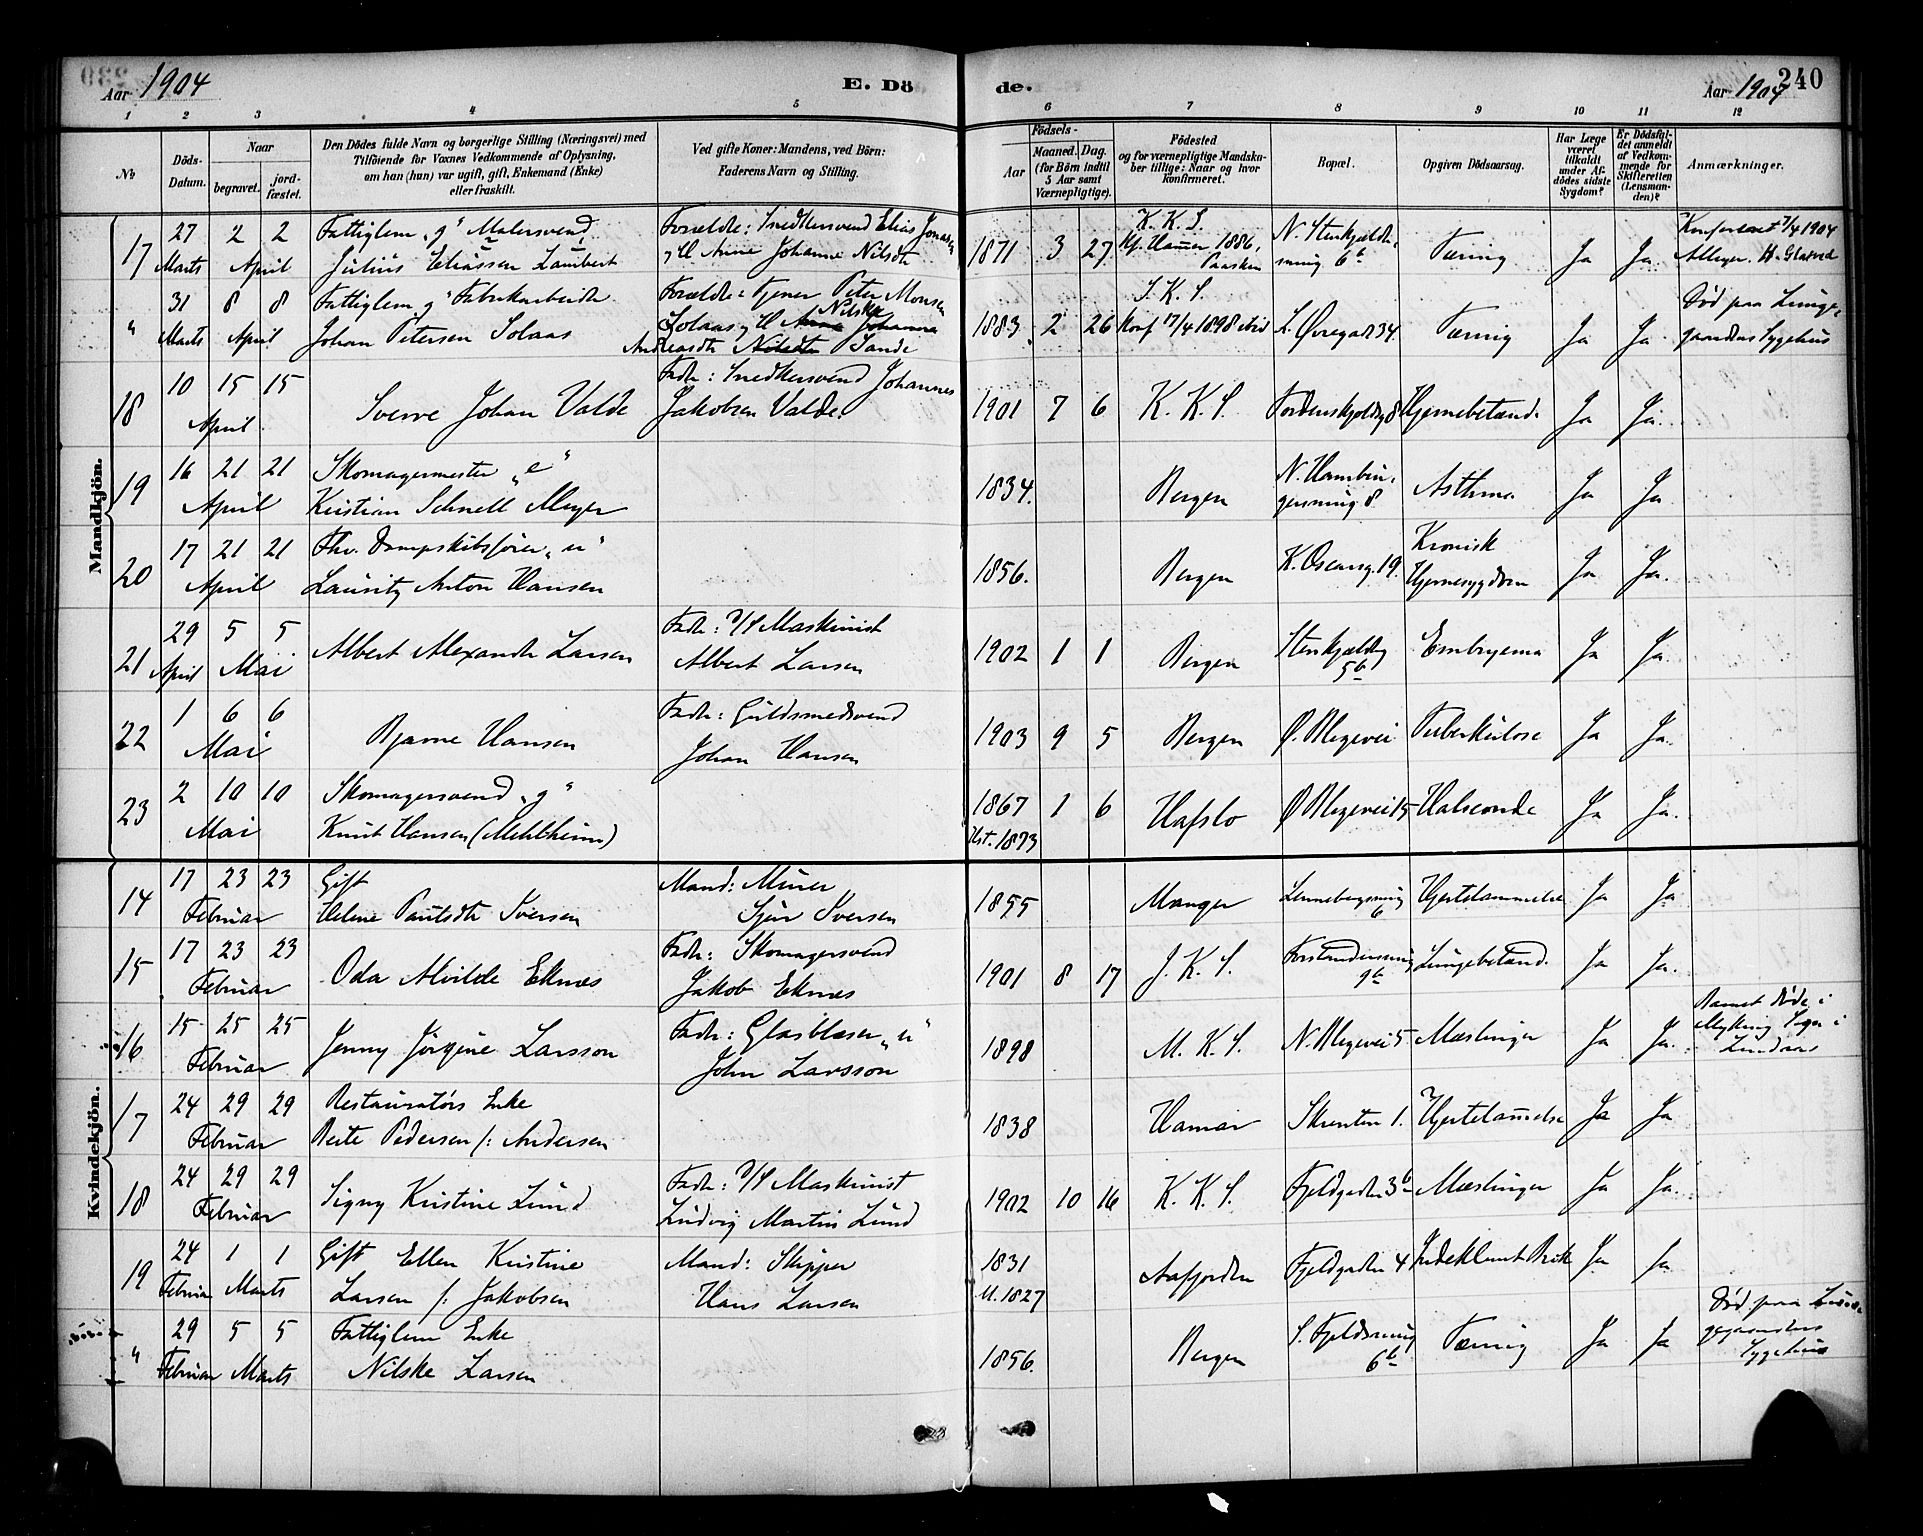 Aar 1904
E. Dö
de.
Aar 1904
240
1 2 3 4 5 6 7 8 9 10 11 12
No
Döds-Datum.
Naar
begravet.
jord-fæstet.
Den Dödes fulde Navn og borgerlige Stilling (Næringsvei) med
Tilföiende for Voxnes Vedkommende af Oplysning,
om han (hun) var ugift, gift, Enkemand (Enke)
eller fraskilt.
Ved gifte Koner: Mandens, ved Börn:
Faderens Navn og Stilling.
Födsels-
Aar
Maaned. Dag.
(for Börn indtil
5 Aar samt
Værnepligtige).
Födested
og for værnepligtige Mandska-
ber tillige: Naar og hvor
konfirmeret.
Bopæl.
Opgiven Dödsaarsag.
Har Læge
været
tilkaldt
under Af-
dödes sidste
Sygdom?
Er Dödsfal-
det anmeldt
af Vedkom-
mende for
Skifteretten
(Lensman-
den)?
Anmærkninger.
Mandkjön.
17 27 Marts 2 2 April
Fattiglem "g" Malersvend
Julius Eliassen Lambert
Forældre: Snedkersvend Elias Jonasen
og H Anne Johanne Nilsdtr
1871 3 27
K. K. S.
Kf. Hamer 1886, Paasken
N. Stenkjelder-
smug 6b
Tæring Ja Ja
Konfereret 7/4 1904
" 31 Marts 8 8 April
Fattiglem g" Fabrikarbeider
Johan Petersen Solaas
Forældre: Tjener Peter Monsen
Solaas og H Anne Nilske Johanna
Andreasdtr Nilsdtr Sande
1883 2 26
J. K. S.
Konf 17/4 1898 ibid
L. Øvregade 34.
Tæring Ja Ja
Død paa Lunge-
gaardens Sygehus
18 10 15 15 April
Sverre Johan Valde
Fader: Snedkersvend Johannes
Jakobsen Valde
1901 7 6 K. K. S. Tordenskjoldsg 8 Hjernebetænd. Ja Ja
19 16 21 21 April
Skomagermester "e"
Kristian Schnell Meyer
1834. Bergen
N. Hambur-
gersmug 8
Asthma Ja Ja
20 17 21 21 April
Fhv. Dampskibsfører "u"
Lauritz Anton Hansen
1856. Bergen K. Oscarsg. 19.
Kronisk
Hjernesygdom
Ja Ja.
21 29 April 5 5 Mai
Albert Alexander Larsen
Fader: D/S Maskinist
Albert Larsen
1902 1 1 Bergen
Stenkjelderg
5b
Embryema Ja Ja
22 1 6 6 Mai
Bjarne Hansen
Fader: Guldsmedsvend
Johan Hansen
1903 9 5 Bergen Ø. Blegevei Tuberkulose Ja Ja.
23 2 10 10 Mai
Skomagersvend "g"
Knut Hansen (Mehlheim)
1867 1 6
Hst. 1873
Hafslo Ø Blegevei 15 Halsconde Ja Ja.
Kvindekjön.
14 17 23 23 Februar
Gift
Helene Paulsdtr Iversen
Mand: Murer
Sjur Iversen
1855 Manger
Lennebergsmug
6
Hjertelammelse Ja Ja
15 17 23 23 Februar
Oda Alvilde Eknæs
Fader: Skomagersvend
Jakob Eknæs
1901 8 17 J. K. S.
Forstandersmug
9b
Lungebetænd. Ja Ja.
16 15 25 25 Februar
Jenny Jørgine Larsson
Fader: Glasblæser "u"
John Larsson
1898 M. K. S. N. Blegevei 5 Mæslinger Ja Ja.
Barnet døde i
Myking Sogn i
Lindaas
17 24 29 29 Februar
Restauratørs Enke
Berte Pedersen f: Andersen
1838 Hamar Skrenten 1. Hjertelammelse Ja Ja
18 24 29 29 Februar
Signy Kristine Lund
Fader: D/S Maskinist
Ludvig Martin Lund
1902 10 16 K. K. S. Fjeldgaden 3b Mæslinger Ja Ja.
19 24 Februar 1 1 Marts
Gift Ellen Kristine
Larsen f: Jakobsen
Mand: Skipper
Hans Larsen
1831
M. 1827
Aafjorden Fjeldgaden 4 Indeklemt Brok Ja Ja
" 29 Februar 5 5 Marts
Fattiglem Enke
Nilske Larsen
1856. Bergen
S. Fjeldsmug
6b
Tæring Ja Ja
Død paa Lun-
gegaardens
Sygehus